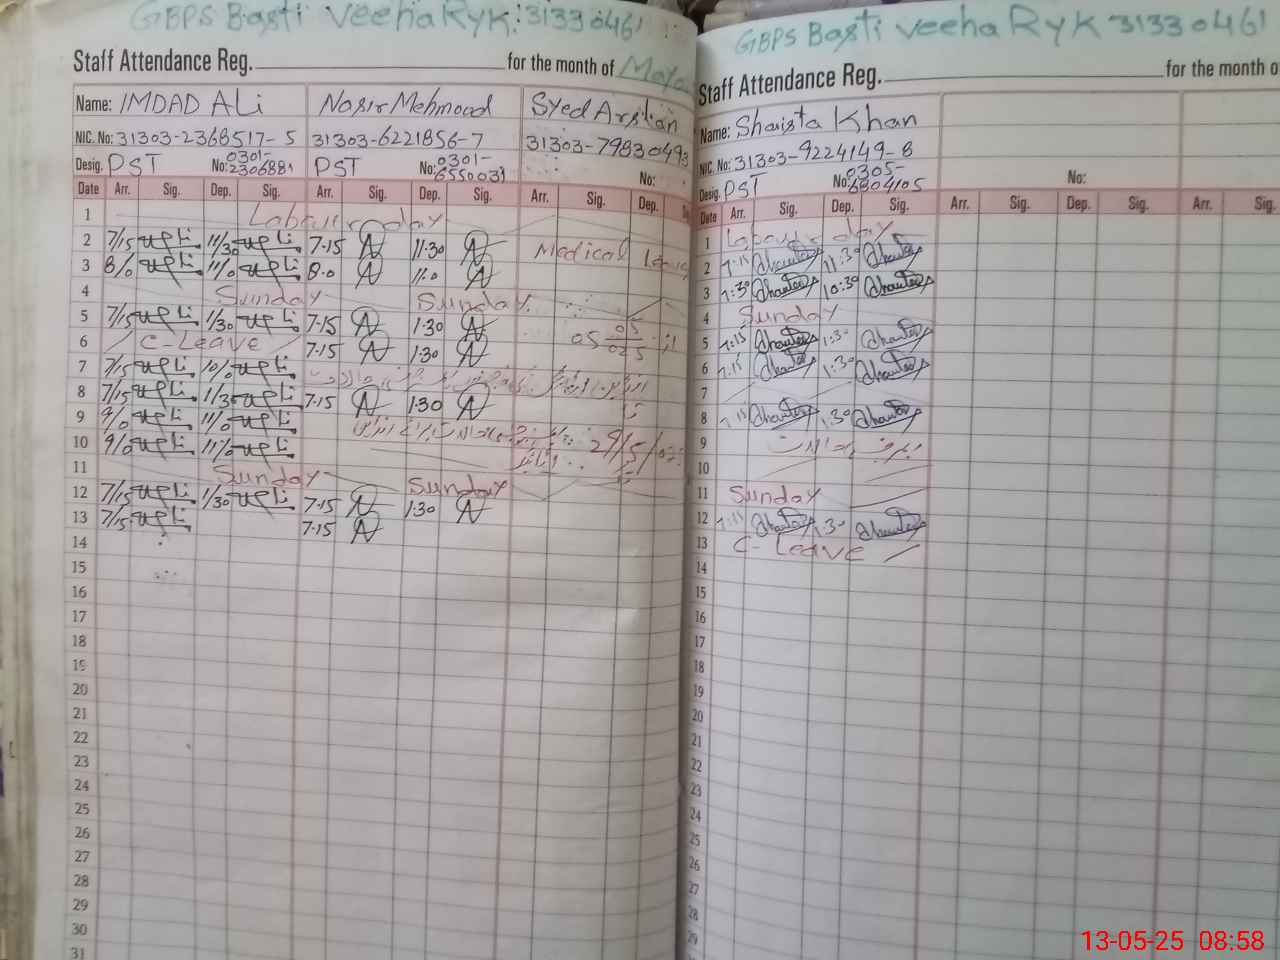 GBPS Basti Veeha RYK 31330461
Staff Attendance Reg. for the month of
Name: IMDAD ALi Nasir Mehmood Syed Arslan
NIC. No: 31303-2368517-5 31303-6221856-7 31303-7983049
Desig. PST No: 0301-2306881 PST No: 0301-6550031 No:
Date Arr. Sig. Dep. Sig. Arr. Sig. Dep. Sig. Arr. Sig. Dep.
1 Labour day
2 7/15 11/30 7-15 11-30 Medical Leave
3 8/0 11/0 8-0 11-0
4 Sunday Sunday
5 7/15 1/30 7-15 1-30
6 C-Leave 7-15 1-30
7 7/15 10/0
8 7/15 1/30 7-15 1-30
9 9/0 11/0
10 9/0 11/0
11 Sunday Sunday
12 7/15 1/30 7-15 1-30
13 7/15 7-15
14
15
16
17
18
19
20
21
22
23
24
25
26
27
28
29
30
31
GBPS Basti Veeha RYK 31330461
Staff Attendance Reg. for the month o
Name: Shaista Khan
NIC. No: 31303-9224149-8
Desig. PST No: 0305-6804105 No:
Date Arr. Sig. Dep. Sig. Arr. Sig. Dep. Sig. Arr. Sig.
1 Labour day
2 7:15 11:30
3 7:30 10:30
4 Sunday
5 7:15 1:30
6 7:15 1:30
7
8 7:15 1:30
9
10
11 Sunday
12 7:15 1:30
13 C-Leave
14
15
16
17
18
19
20
21
22
23
24
25
26
27
28
29
13-05-25 08:58